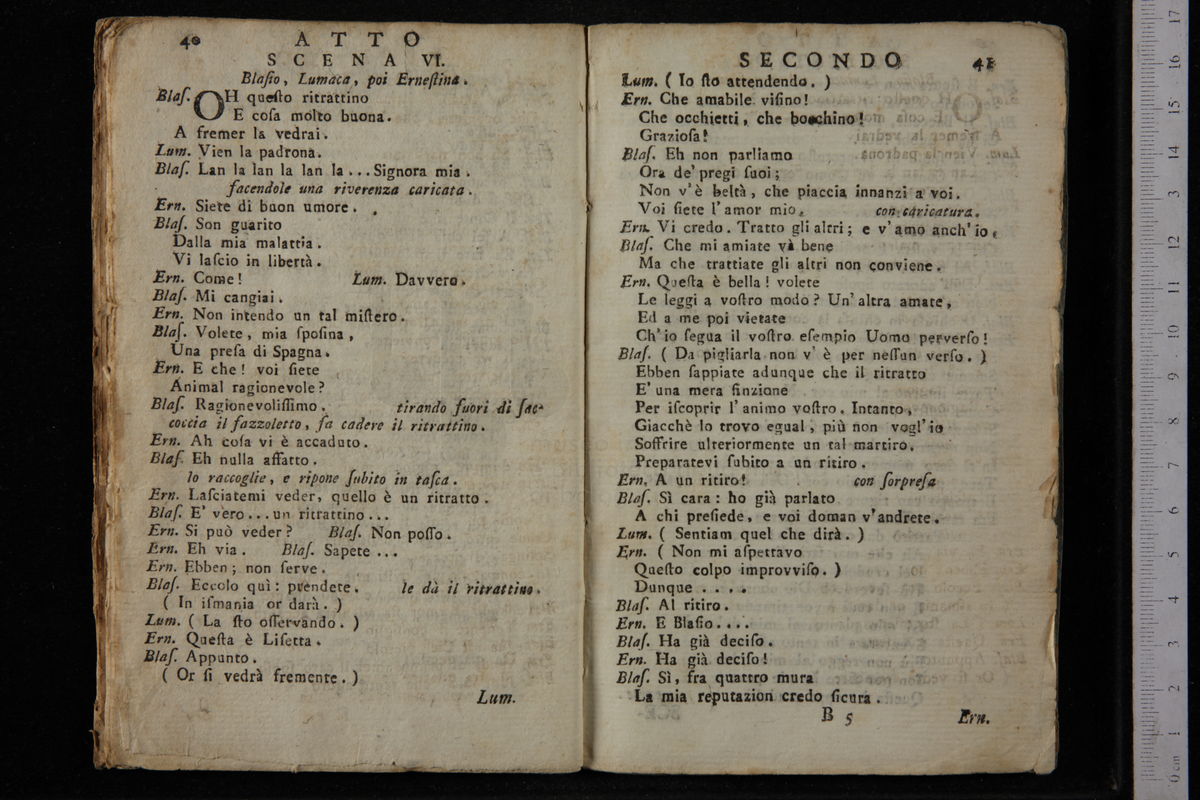 40 ATTO
SCENA VI.
Blaſio, Lumaca, poi Erneſtina.
Blaſ. OH queſto ritrattino
E coſa molto buona.
A fremer la vedrai.
Lum. Vien la padrona.
Blaſ. Lan la lan la lan la... Signora mia.
facendole una riverenza caricata.
Ern. Siete di buon umore.
Blaſ. Son guarito
Dalla mia malattia.
Vi laſcio in libertà.
Ern. Come! Lum. Davvero.
Blaſ. Mi cangiai.
Ern. Non intendo un tal miſtero.
Blaſ. Volete, mia ſpoſina,
Una preſa di Spagna.
Ern. E che! voi ſiete
Animal ragionevole?
Blaſ. Ragionevoliſſimo. tirando fuori di ſac-
coccia il fazzoletto, fa cadere il ritrattino.
Ern. Ah coſa vi è accaduto.
Blaſ. Eh nulla affatto.
lo raccoglie, e ripone ſubito in taſca.
Ern. Laſciatemi veder, quello è un ritratto.
Blaſ. E' vero... un ritrattino...
Ern. Si può veder? Blaſ. Non poſſo.
Ern. Eh via. Blaſ. Sapete...
Ern. Ebben; non ſerve.
Blaſ. Eccolo quì: prendete. le dà il ritrattino.
( In iſmania or darà. )
Lum. ( La ſto oſſervando. )
Ern. Queſta è Liſetta.
Blaſ. Appunto.
( Or ſi vedrà fremente. )
Lum.
SECONDO 41
Lum. ( Io ſto attendendo. )
Ern. Che amabile viſino!
Che occhietti, che bocchino!
Grazioſa!
Blaſ. Eh non parliamo
Ora de' pregi ſuoi;
Non v'è beltà, che piaccia innanzi a voi.
Voi ſiete l'amor mio. con caricatura.
Ern. Vi credo. Tratto gli altri; e v'amo anch'io.
Blaſ. Che mi amiate và bene
Ma che trattiate gli altri non conviene.
Ern. Queſta è bella! volete
Le leggi a voſtro modo? Un'altra amate,
Ed a me poi vietate
Ch'io ſegua il voſtro eſempio Uomo perverſo!
Blaſ. ( Da pigliarla non v' è per neſſun verſo. )
Ebben ſappiate adunque che il ritratto
E' una mera finzione
Per iſcoprir l'animo voſtro. Intanto,
Giacchè lo trovo egual, più non vogl'io
Soffrire ulteriormente un tal martiro.
Preparatevi ſubito a un ritiro.
Ern. A un ritiro! con ſorpreſa
Blaſ. Sì cara: ho già parlato
A chi preſiede, e voi doman v'andrete.
Lum. ( Sentiam quel che dirà. )
Ern. ( Non mi aſpettavo
Queſto colpo improvviſo. )
Dunque ....
Blaſ. Al ritiro.
Ern. E Blaſio....
Blaſ. Ha già deciſo.
Ern. Ha già deciſo!
Blaſ. Sì, fra quattro mura
La mia reputazion credo ſicura.
B 5 Ern.